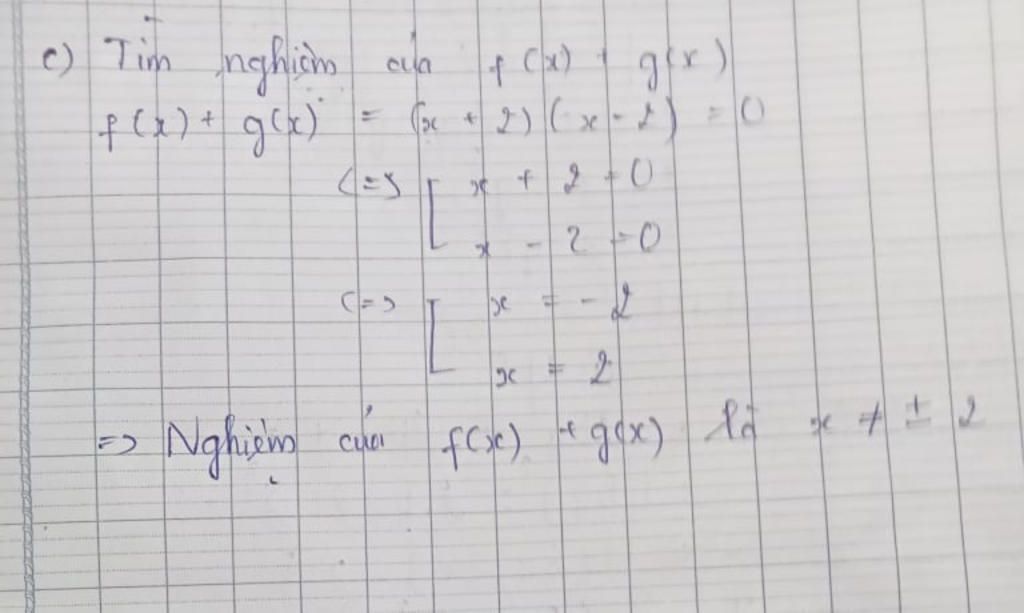 c) Tìm nghiệm của f(x) + g(x)
f(x) + g(x) = (x + 2)(x - 2) = 0
<=> [ x + 2 = 0
x - 2 = 0
<=> [ x = - 2
x = 2
=> Nghiệm của f(x) + g(x) là x = ± 2